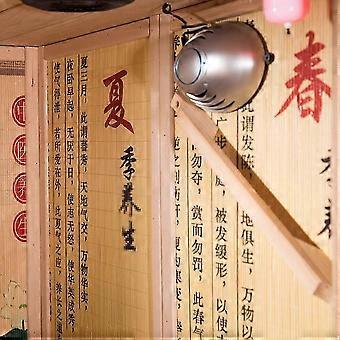 春
此谓发陈，
地俱生，万物以
广步
庭，被发缓形，以使
勿夺，赏而勿罚，此春气
逆之则伤肝，夏为寒变，
夏季养生
夏三月，此谓蕃秀，天地气交，万物华实，
夜卧早起，无厌于日，使志无怒，使华英成秀，
使气得泄，若所爱在外，此夏气之应，养长之道
中医养生